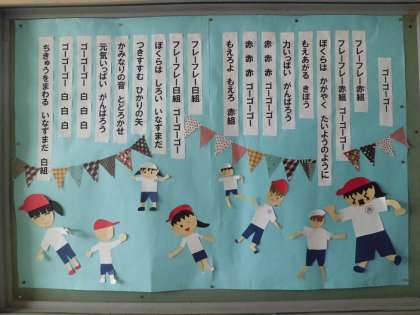 ゴーゴーゴー
フレーフレー赤組
フレーフレー赤組　ゴーゴーゴー
ぼくらは　かがやく　たいようのように
もえあがる　きぼう
力いっぱい　がんばろう
赤　赤　赤　ゴーゴーゴー
赤　赤　赤　ゴーゴーゴー
もえろよ　もえろ　赤組
フレーフレー白組　ゴーゴーゴー
フレーフレー白組
ぼくらは　しろい　いなずまだ
つきすすむ　ひかりの矢
かみなりの音　とどろかせ
元気いっぱい　がんばろう
ゴーゴーゴー　白　白　白
ゴーゴーゴー　白　白　白
ちきゅうをまわる　いなずまだ　白組